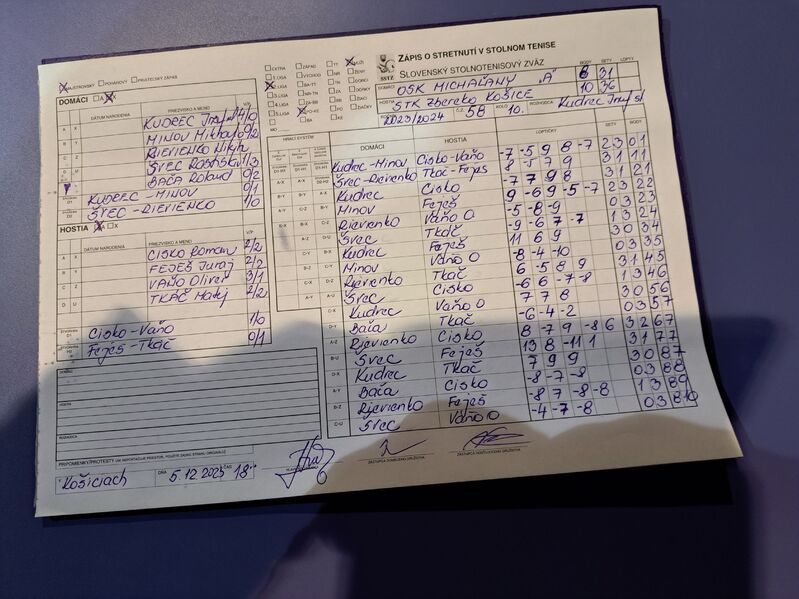 ZÁPIS O STRETNUTÍ V STOLNOM TENISE
SLOVENSKÝ STOLNOTENISOVÝ ZVÄZ
MAJSTROVSKÝ POHÁROVÝ PRIATEĽSKÝ ZÁPAS
EXTRA ZÁPAD TT MUŽI
1.LIGA VÝCHOD NR ŽENY
2.LIGA BA-TT TN DORCI
3.LIGA
4.LIGA
5.LIGA PO-KE
BODY SETY LOPTY
DOMÁCI OSK MICHAĽANY "A" 8 31
HOSTIA STK Zbereko KOŠICE 10 36
2023/2024 Č.Z. 58 KOLO 10. ROZHODCA Kudrec Jozef st
DOMÁCI A X
DÁTUM NARODENIA PRIEZVISKO A MENO V/P
A X KUDREC Jozef 4/0
B Y MINOV Mikhaylo 0/2
C Z RIEVIENKO Nikita
D U ŠVEC Rostislav 1/3
BAČA Roland 0/2
KUDREC - MINOV 0/1
ŠVEC - RIEVIENKO 1/0
HOSTIA A X
DÁTUM NARODENIA PRIEZVISKO A MENO V/P
A X CISKO Roman 2/2
B Y FEJEŠ Juraj 2/2
C Z VAŇO Oliver 3/1
D U TKÁČ Matej 2/2
Cisko - Vaňo 1/0
Feješ - Tkáč 0/1
HRACÍ SYSTÉM DOMÁCI HOSTIA LOPTIČKY SETY BODY
Kudrec - Minov Cisko - Vaňo -7 -5 9 8 -7 2 3 0 1
Švec - Rievienko Tkáč - Feješ 8 -5 7 9 3 1 1 1
Kudrec Cisko -7 7 9 8 3 1 2 1
Minov Feješ 9 -6 9 -5 -7 2 3 2 2
Rievienko Vaňo O -5 -8 -9 0 3 2 3
Švec Tkáč -9 -6 7 -7 1 3 2 4
Kudrec Feješ 11 6 9 3 0 3 4
Minov Vaňo O -8 -4 -10 0 3 3 5
Rievienko Tkáč 6 -5 8 9 3 1 4 5
Švec Cisko -6 6 -7 -8 1 3 4 6
Kudrec Vaňo O 7 7 8 3 0 5 6
Bača Tkáč -6 -4 -2 0 3 5 7
Rjevienko Cisko 8 -7 9 -8 6 3 2 6 7
Švec Feješ 13 8 -11 1 3 1 7 7
Kudrec Tkáč 7 9 9 3 0 8 7
Bača Cisko -8 -7 -8 0 3 8 8
Rjevienko Feješ -8 7 -8 -8 1 3 8 9
Švec Vaňo O -4 -7 -8 0 3 8 10
DOMÁCI
HOSTIA
ROZHODCA
PRIPOMIENKY/PROTESTY
V Košiciach DŇA 5.12.2023 ČAS 18°°
ZÁSTUPCA DOMÁCEHO DRUŽSTVA
ZÁSTUPCA HOSŤUJÚCEHO DRUŽSTVA